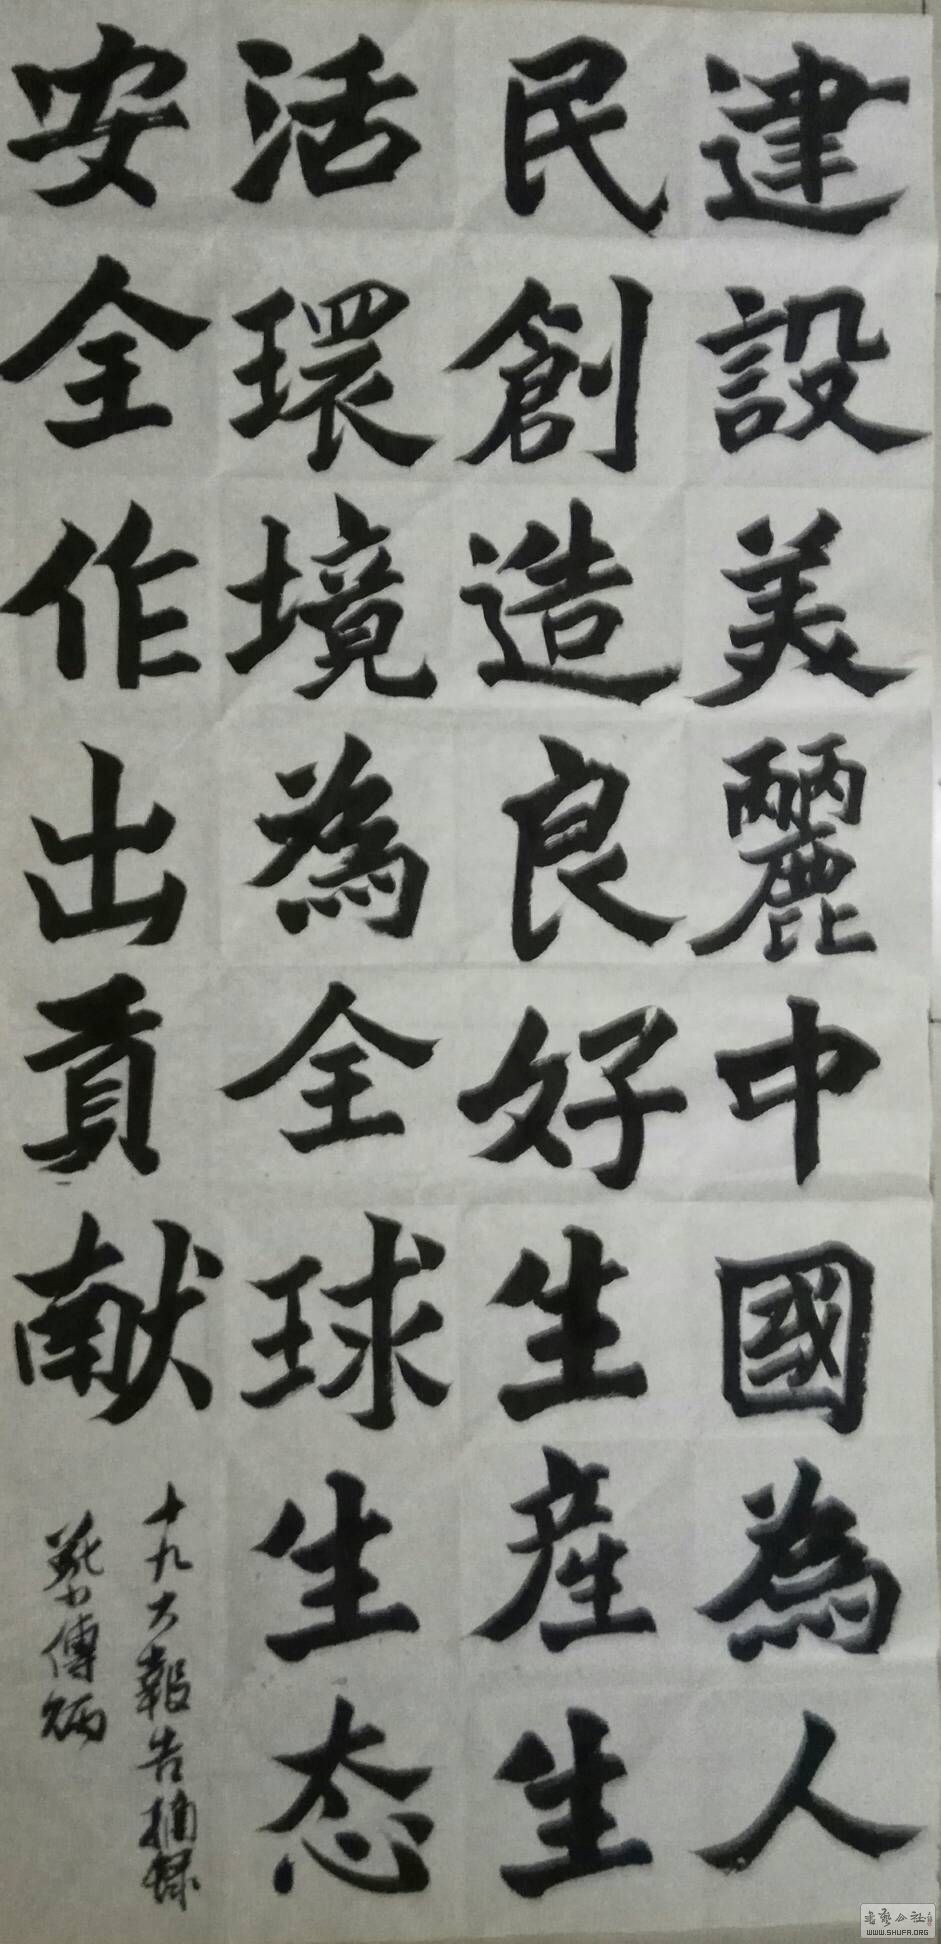 建設美麗中國為人
民創造良好生產生
活環境為全球生态
安全作出貢献
十九大報告摘録
傳炳
書藝公社
WWW.SHUFA.ORG